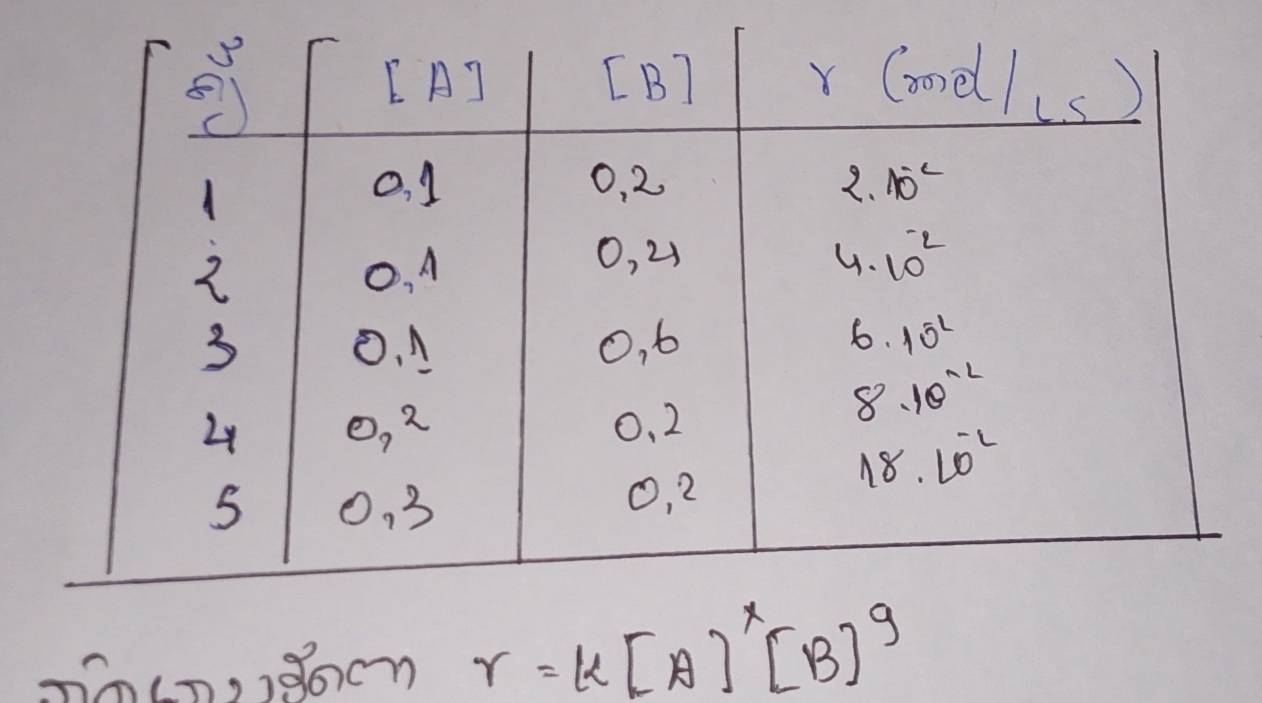 [A] [B] r (mol/L.S)
1 0,1 0,2 2.10⁻²
2 0,1 0,4 4.10⁻²
3 0,1 0,6 6.10⁻²
4 0,2 0,2 8.10⁻²
5 0,3 0,2 18.10⁻²
r = k[A]ˣ[B]ʸ